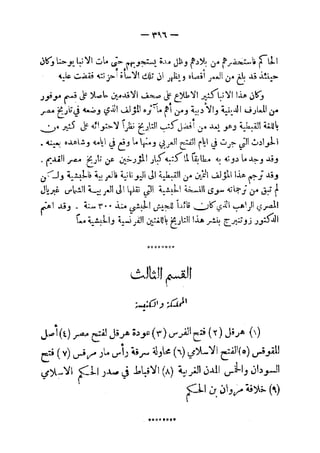 — ٣٩٦ —
الحاكم فاستحضرهم من بلادهم وظل مدة يستجوبهم حتى مات الانبا يوحنا وكان
حينئذ قد بلغ من العمر أقصاه ويظهر ان تلك الاساءة أحزنته فقضت عليه
وكان هذا الانبا كثير الاطلاع على صحف الاقدمين حاصلا على قسم موفور
من المعارف الدينية والادبية ومن أهم مآثره المؤلف الذي وضعه في تاريخ مصر
باللغة القبطية وهو يعد من أفضل كتب التاريخ نظراً لاحتوائه على كثير من
الحوادث التي جرت في ايام الفتح العربي ومنها ما وقع في ايامه وشاهده بعينه .
وقد وجد ما دونه به مطابقاً لما كتبه كبار المؤرخين عن تاريخ مصر القديم .
وقد ترجم هذا المؤلف الثمين من القبطية الى اليونانية فالعربية فالحبشية ولكن
لم تبق من ترجماته سوى النسخة الحبشية التي نقلها الى العربية الشماس غبريال
المصري الراهب الذي كان قائداً للجيش الحبشي منذ ٣٠٠ سنة . وقد اهتم
الدكتور زوتنبرج بنشر هذا التاريخ باللغتين الفرنسية والحبشية معاً
********
القسم الثالث
المملكة والكنيسة
(١) هرقل (٢) فتح الفرس (٣) عودة هرقل لفتح مصر (٤) أصل
المقوقس (٥) الفتح الاسلامي (٦) محاولة سرقة رأس مار مرقس (٧) فتح
السودان والخمس المدن الغربية (٨) الاقباط في صدر الحكم الاسلامي
(٩) خلافة مروان بن الحكم
********